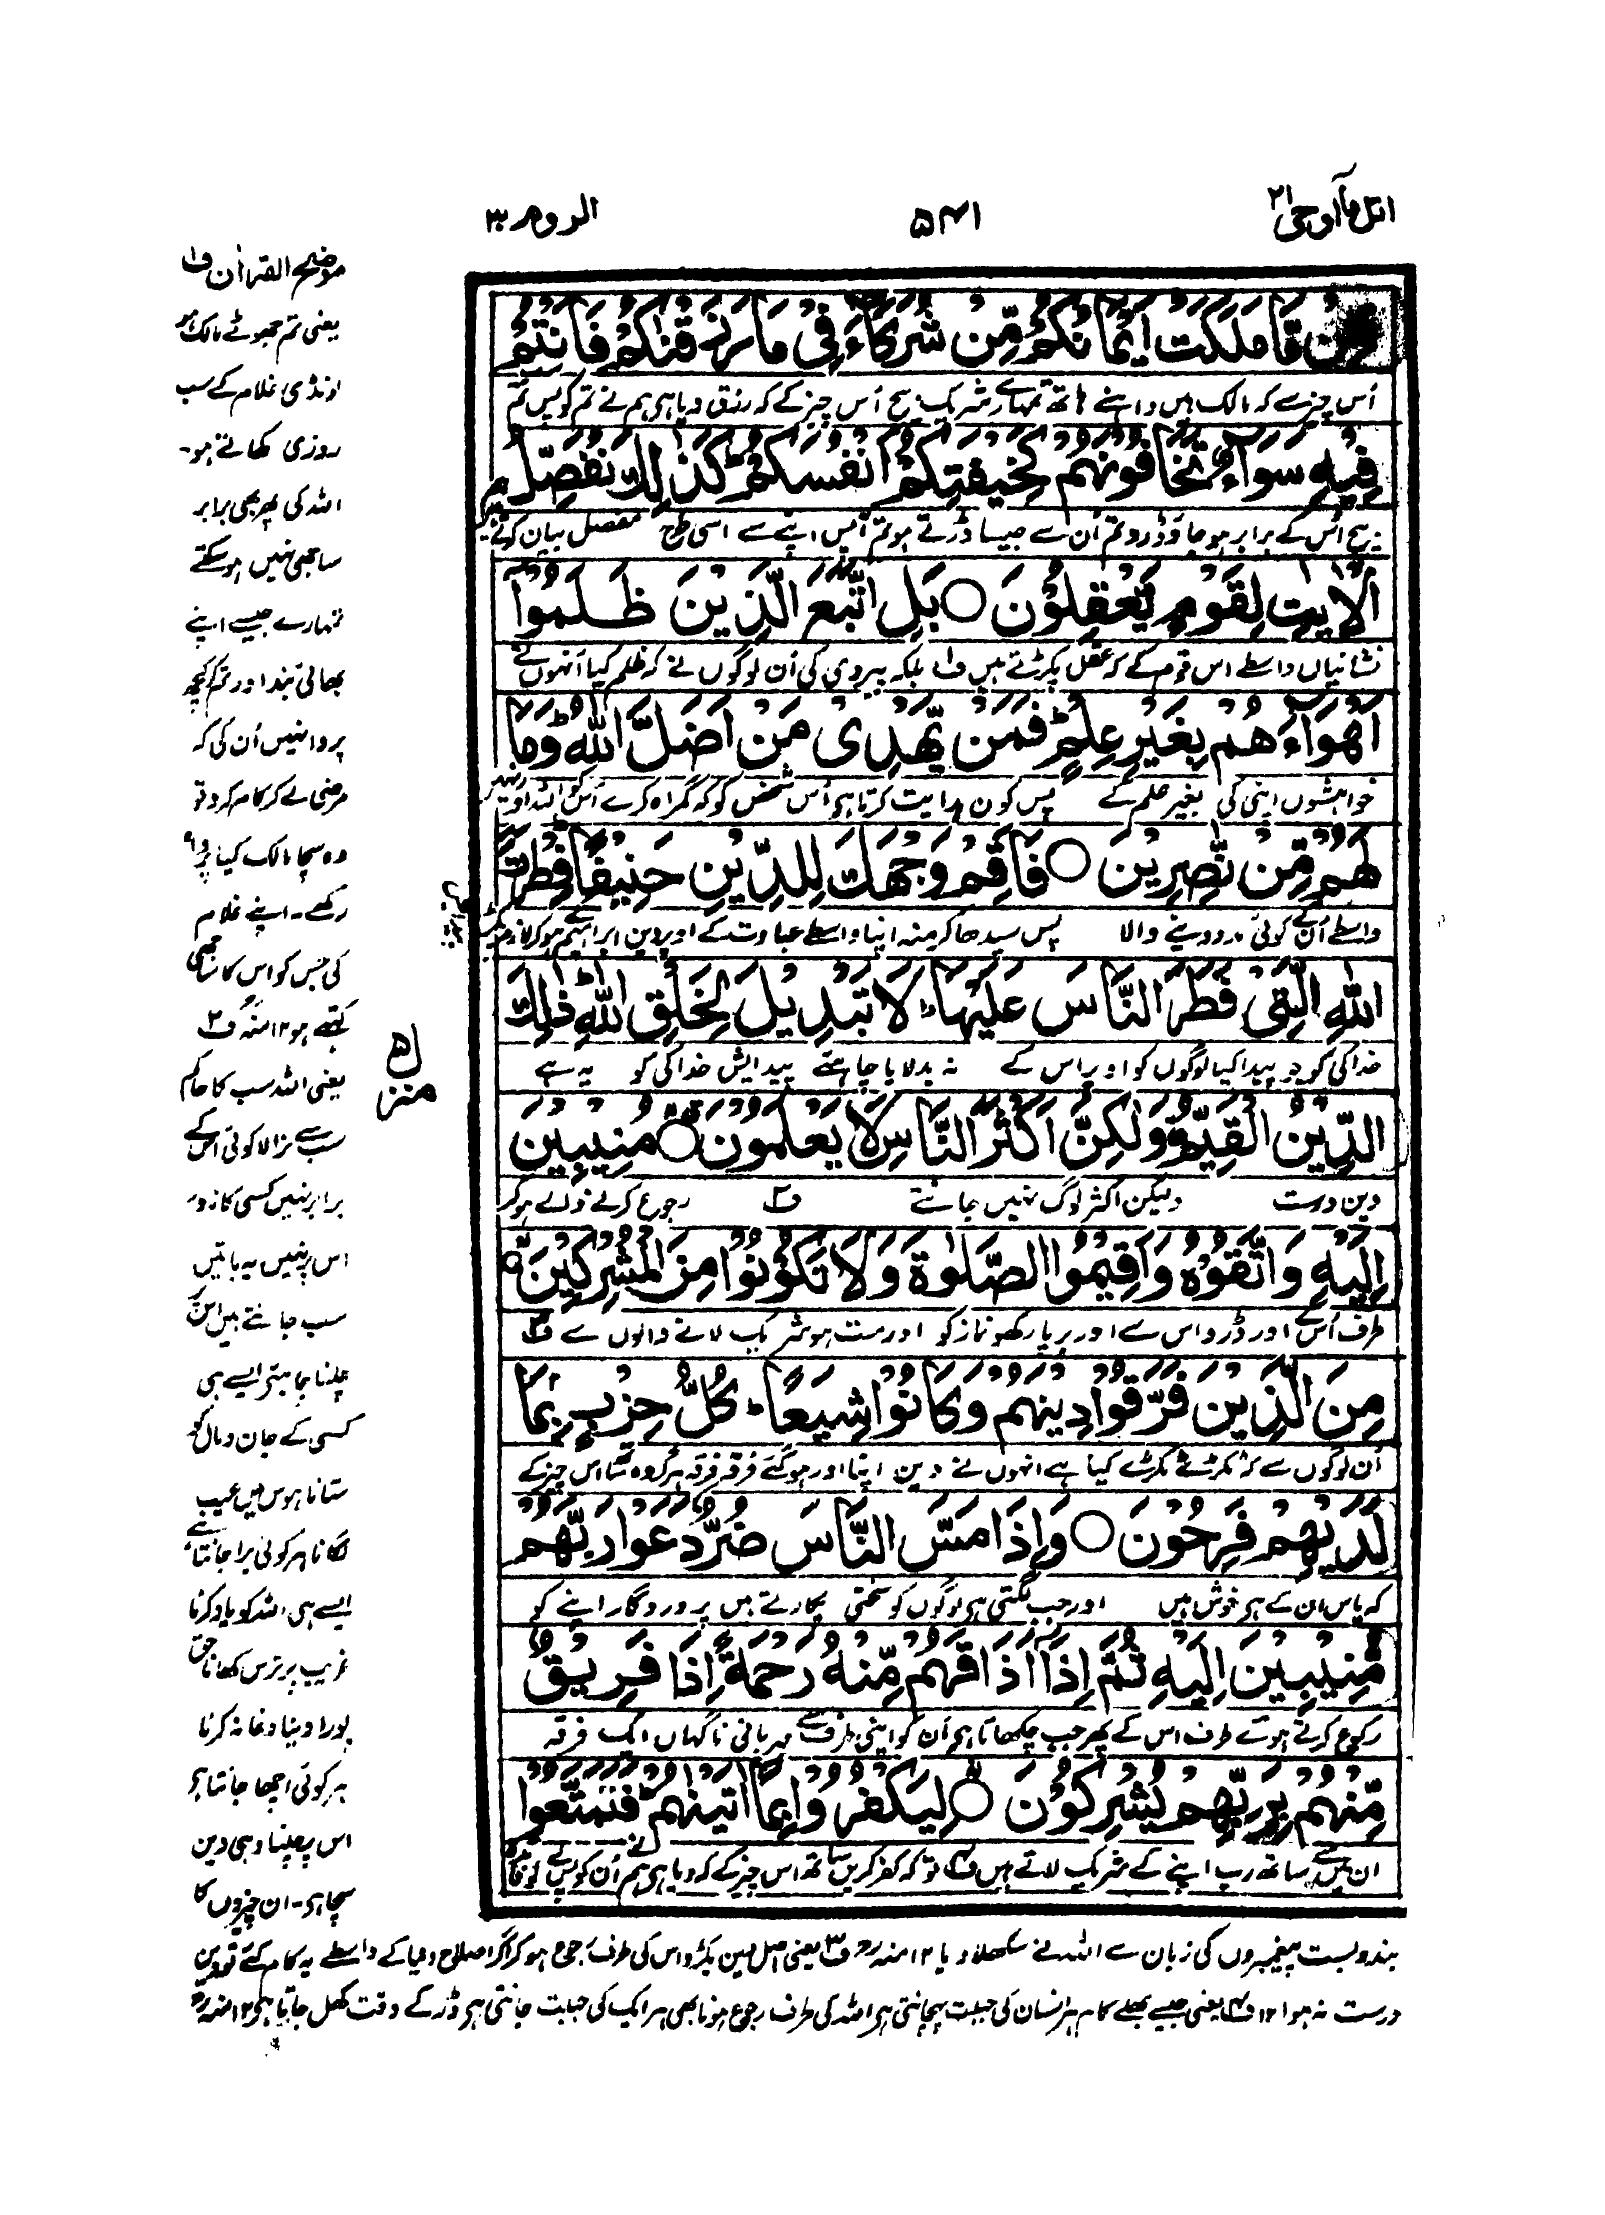 اتل مآ اوحی ۲۱
۵۴۱
الروم ۳۰
مِّنْ مَّا مَلَكَتْ اَیْمَانُكُمْ مِّنْ شُرَكَآءَ فِیْ مَا رَزَقْنٰكُمْ فَاَنْتُمْ
اُس چیز سے کہ مالک ہیں داہنے ہاتھ تمہارے شریک بیچ اُس چیز کے کہ رزق دیا ہی ہم نے تم کو پس تم
فِیْهِ سَوَآءٌ تَخَافُوْنَهُمْ كَخِیْفَتِكُمْ اَنْفُسَكُمْ ؕ كَذٰلِكَ نُفَصِّلُ
بیچ اُس کے برابر ہو جاؤ ڈرو تم اُن سے جیسا ڈرتے ہو تم آپس اپنے سے اسی طرح مفصل بیان کرتے ہیں ہم
الْاٰیٰتِ لِقَوْمٍ یَّعْقِلُوْنَ ○ بَلِ اتَّبَعَ الَّذِیْنَ ظَلَمُوْۤا
نشانیاں واسطے اس قوم کے کہ عقل پکڑتے ہیں ف۱ بلکہ پیروی کی اُن لوگوں نے کہ ظلم کیا اُنہوں نے
اَهْوَآءَهُمْ بِغَیْرِ عِلْمٍ ۚ فَمَنْ یَّهْدِیْ مَنْ اَضَلَّ اللّٰهُ ؕ وَمَا
خواہشوں اپنی کی بغیر علم کے پس کون ہدایت کرتا ہی اُس شخص کو کہ گمراہ کرے اُس کو اللہ اور نہیں
لَهُمْ مِّنْ نّٰصِرِیْنَ ○ فَاَقِمْ وَجْهَكَ لِلدِّیْنِ حَنِیْفًا ؕ فِطْرَتَ
واسطے اُن کے کوئی مدد دینے والا پس سیدھا کر منہ اپنا واسطے عبادت کے اوپر دین ابراہیم ہو کر لازم
اللّٰهِ الَّتِیْ فَطَرَ النَّاسَ عَلَیْهَا ؕ لَا تَبْدِیْلَ لِخَلْقِ اللّٰهِ ؕ ذٰلِكَ
خدا کی کو جو پیدا کیا لوگوں کو اوپر اس کے نہ بدلا یا چاہئے پیدایش خدا کی کو یہ ہے
الدِّیْنُ الْقَیِّمُ ۙ وَلٰكِنَّ اَكْثَرَ النَّاسِ لَا یَعْلَمُوْنَ ○ مُنِیْبِیْنَ
دین درست ولیکن اکثر لوگ نہیں جانتے ف۲ رجوع کرنے والے ہو کر
اِلَیْهِ وَاتَّقُوْهُ وَاَقِیْمُوا الصَّلٰوةَ وَلَا تَكُوْنُوْا مِنَ الْمُشْرِكِیْنَ ○
طرف اُس کے اور ڈرو اس سے اور برپا رکھو نماز کو اور مت ہو شریک لانے والوں سے ف۳
مِنَ الَّذِیْنَ فَرَّقُوْا دِیْنَهُمْ وَكَانُوْا شِیَعًا ؕ كُلُّ حِزْبٍۭ بِمَا
اُن لوگوں سے کہ ٹکڑے ٹکڑے کیا ہے انہوں نے دین اپنا اور ہو گئے فرقہ فرقہ ہر گروہ ساتھ اس چیز کے
لَدَیْهِمْ فَرِحُوْنَ ○ وَاِذَا مَسَّ النَّاسَ ضُرٌّ دَعَوْا رَبَّهُمْ
کہ پاس ان کے ہی خوش ہیں اور جب لگتی ہی لوگوں کو سختی پکارتے ہیں پروردگار اپنے کو
مُّنِیْبِیْنَ اِلَیْهِ ثُمَّ اِذَاۤ اَذَاقَهُمْ مِّنْهُ رَحْمَةً اِذَا فَرِیْقٌ
رکوع کرتے ہوئے طرف اس کے پھر جب چکھاتا ہی اُن کو اپنی طرف سے مہربانی ناگہاں ایک فرقہ
مِّنْهُمْ بِرَبِّهِمْ یُشْرِكُوْنَ ○ لِیَكْفُرُوْا بِمَاۤ اٰتَیْنٰهُمْ ؕ فَتَمَتَّعُوْا
ان میں سے ساتھ رب اپنے کے شریک لاتے ہیں ف۴ تو کہ کفر کریں ساتھ اس چیز کے کہ دیا ہی ہم نے اُن کو پس
موضح القرآن ف۱
یعنی تم جھوٹے مالک ہو
لونڈی غلام کے سب
روزی کھاتے ہو۔
اللہ کی پھر بھی برابر
ساجھی نہیں ہو سکتے
تمہارے جیسے اپنے
بھائی بند اور تم کچھ
پروا نہیں اُن کی کہ
مرضی لے کر کام کرو تو
وہ سچا مالک کیا پروا
رکھے۔ اپنے غلام
کی جس کو اس کا ساجھی
کہتے ہو ۱۲ منہ ف۲
یعنی اللہ سب کا حاکم
سب سے نرالا کوئی اس کے
برابر نہیں کسی کا زور
اس پر نہیں یہ باتیں
سب جانتے ہیں اس پر
چلنا چاہئے ایسے ہی
کسی کے جان و مال کو
ستانا ناموس میں عیب
لگانا ہر کوئی برا جانتا ہے
ایسے ہی اللہ کو یاد کرنا
غریب پر ترس کھانا حق
پورا دینا دغا نہ کرنا
ہر کوئی اچھا جانتا ہی
اس پر چلنا وہی دین
سچا ہی۔ ان چیزوں کا
منزل ۵
بندوبست پیغمبروں کی زبان سے اللہ نے سکھلا دیا ۱۲ منہ ف۳ یعنی اصل دین پکڑو اس کی طرف رجوع ہو کر اگر اصلاح دنیا کے واسطے یہ کام کئے تو دین
درست نہ ہوا ۱۲ ف۴ یعنی جیسے بھلے کام ہر انسان کی جبلت پہچانتی ہی اللہ کی طرف رجوع ہونا بھی ہر ایک کی جبلت جانتی ہی ڈر کے وقت کھل جاتا ہی ۱۲ منہ